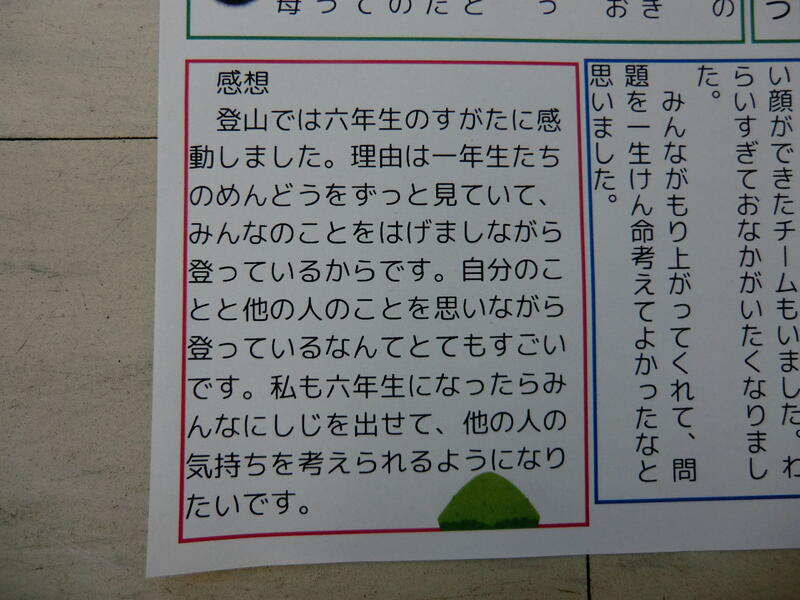 感想
登山では六年生のすがたに感
動しました。理由は一年生たち
のめんどうをずっと見ていて、
みんなのことをはげましながら
登っているからです。自分のこ
とと他の人のことを思いながら
登っているなんてとてもすごい
です。私も六年生になったらみ
んなにしじを出せて、他の人の
気持ちを考えられるようになり
たいです。
い顔ができたチームもいました。わ
らいすぎておなかがいたくなりまし
た。
みんながもり上がってくれて、問
題を一生けん命考えてよかったなと
思いました。